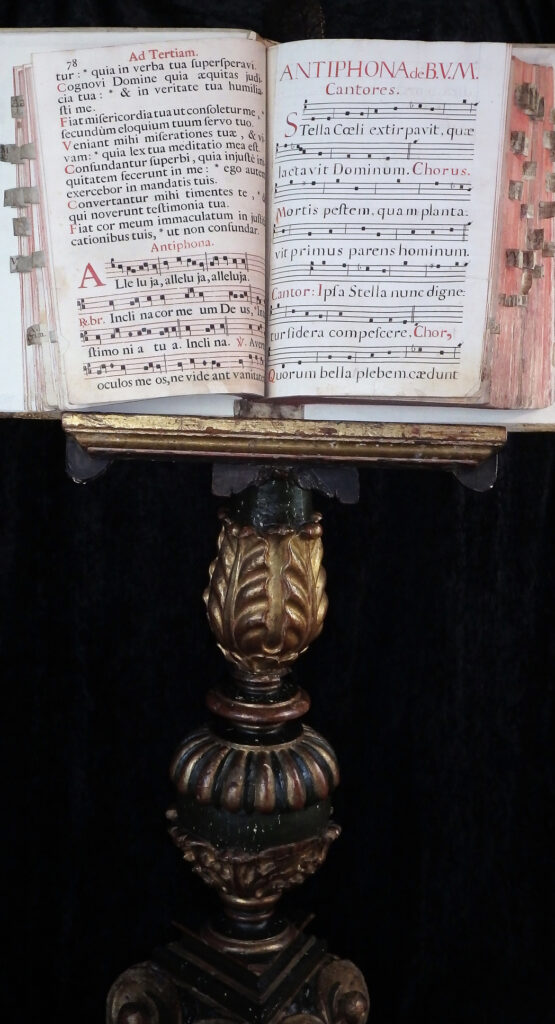 78
Ad Tertiam.
tur : * quia in verba tua superſperavi.
Cognovi Domine quia æquitas judi
cia tua : * & in veritate tua humilia
ſti me.
Fiat miſericordia tua ut conſoletur me, *
ſecundùm eloquium tuum ſervo tuo.
Veniant mihi miſerationes tuæ, & vi
vam: * quia lex tua meditatio mea eſt.
Confundantur ſuperbi, quia injuſtè ini
quitatem fecerunt in me : * ego autem
exercebor in mandatis tuis.
Convertantur mihi timentes te, *
qui noverunt teſtimonia tua.
Fiat cor meum immaculatum in juſtifi
cationibus tuis, * ut non confundar.
Antiphona.
Alle lu ja, allelu ja, alleluja.
℟.br. Incli na cor me um De us, * in
ſtimo ni a tu a. Incli na. ℣. Aver
oculos me os, ne vide ant vanitate
ANTIPHONA de B.V.M.
Cantores.
STella Cœli extirpavit, quæ
lactavit Dominum. Chorus.
Mortis peſtem, quam planta:
vit primus parens hominum.
Cantor: Ipſa Stella nunc digne:
tur ſidera compeſcere. Chor,
Quorum bella plebem cædunt